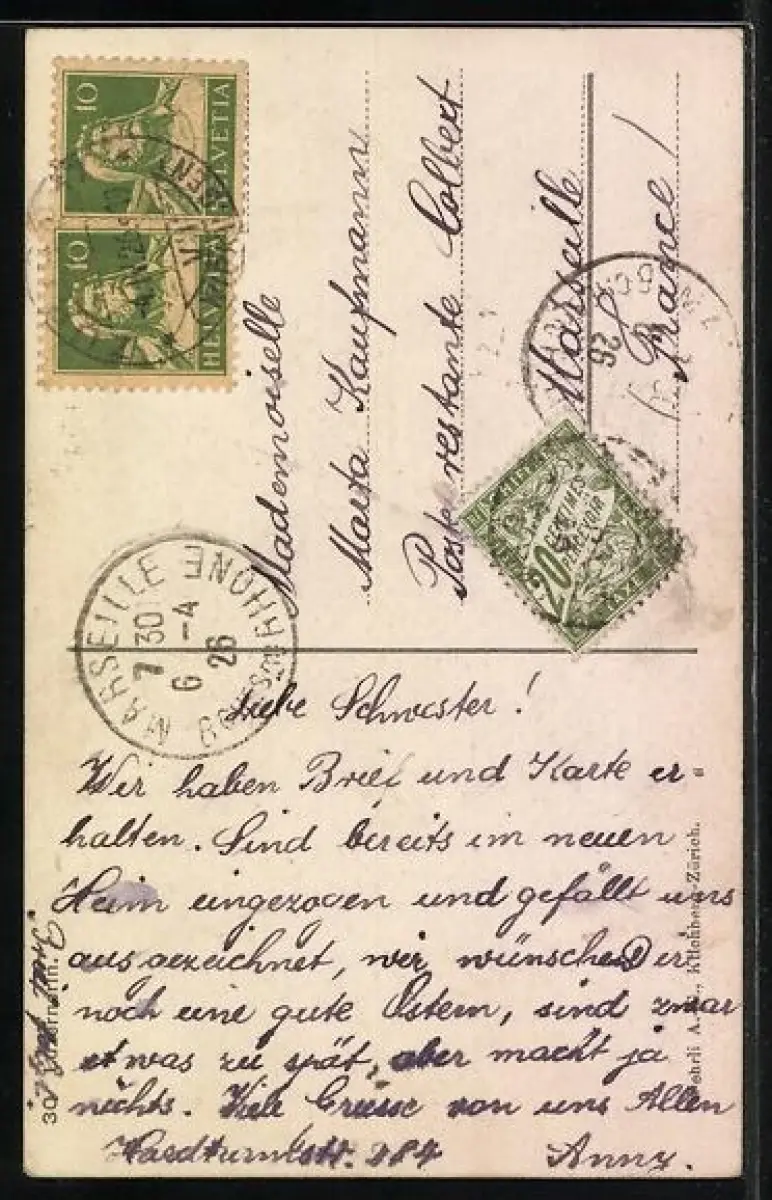 10 HELVETIA
10 HELVETIA
Mademoiselle
Marta Kaufmann
Poste restante Colbert
Marseille
France /
20 CENTIMES
À PERCEVOIR
MARSEILLE
7 30
6 -4
26
BOUCHES DU RHONE
26
Liebe Schwester !
Wir haben Brief und Karte er=
halten. Sind bereits im neuen
Heim eingezogen und gefällt uns
ausgezeichnet, wir wünschen Dir
noch eine gute Ostern, sind zwar
etwas zu spät, aber macht ja
nichts. Viele Grüsse von uns Allen
Hardturmstr. 284 Anny.
Wehrli A.-G., Kilchberg-Zürich.